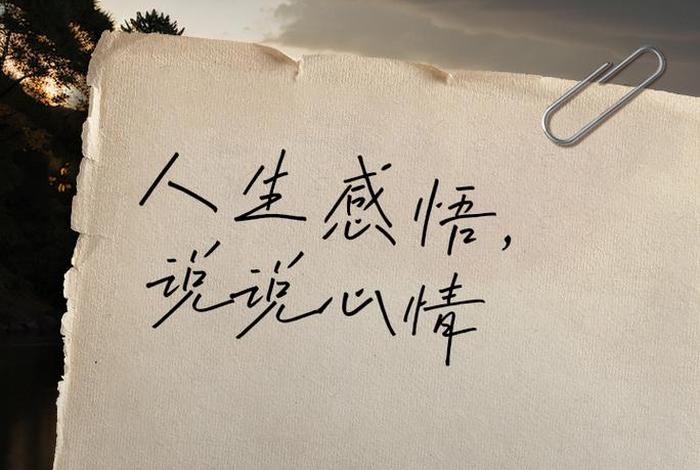 人生感悟,
说说心情